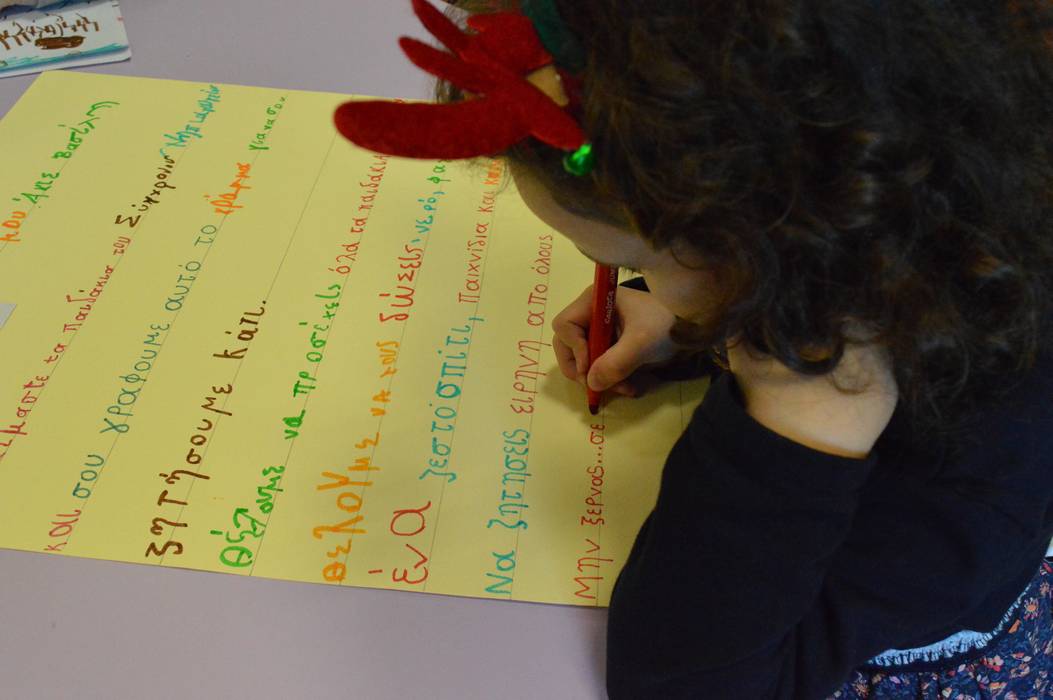 μου Άγιε Βασίλη
είμαστε τα παιδάκια του Σύγχρονου Νηπιαγωγείου
και σου γράφουμε αυτό το γράμμα για να σου
ζητήσουμε κάτι.
Θέλουμε να προσέχεις όλα τα παιδάκια
θελουμε να τους δώσεις νερό, φα
ένα ζεστό σπίτι, παιχνίδια και
Να ζητησεις ειρηνη απο όλους
Μην ξερνας...σε